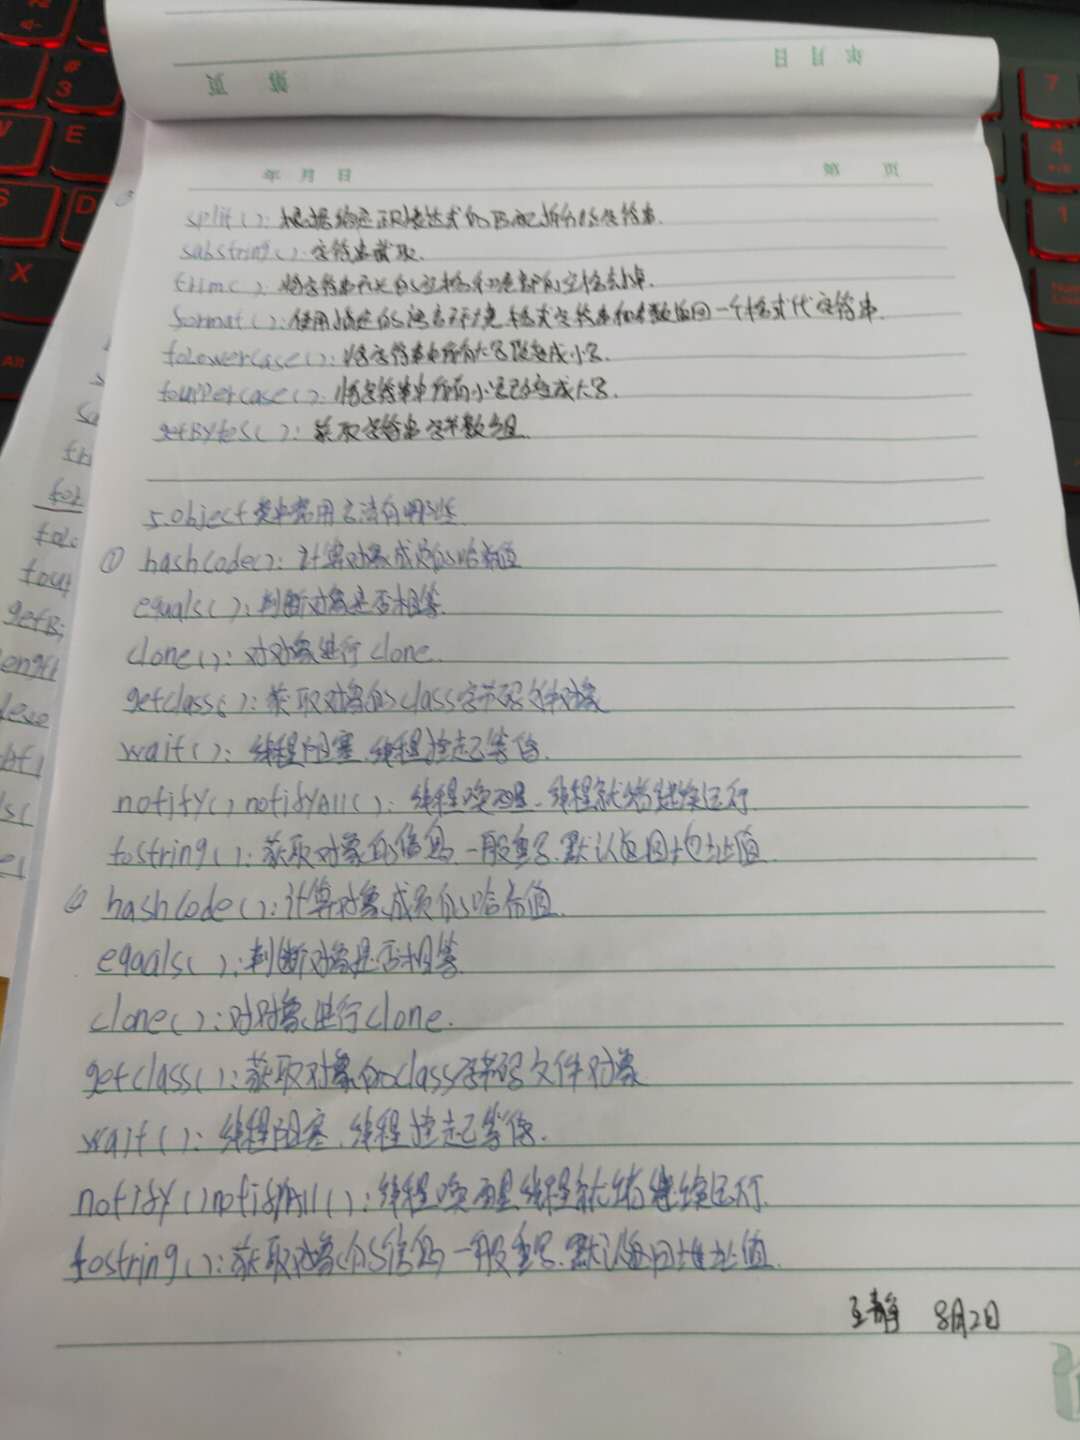 年 月 日
第 页
年 月 日 第 页
split(): 根据给定正则表达式的匹配拆分此字符串.
substring(): 字符串截取.
trim(): 将字符串开头的空格和尾部的空格去掉.
format(): 使用指定的语言环境格式字符串和参数返回一个格式化字符串.
toLowercase(): 将字符串中所有大写改变成小写.
toupPercase(): 将字符串中所有小写改变成大写.
getBytes(): 获取字符串字节数组.
5.Object类中常用方法有哪些
① hashcode(): 计算对象成员的哈希值
equals(): 判断对象是否相等.
clone(): 对对象进行clone.
getclass(): 获取对象的class字节码文件对象
wait(): 线程阻塞.线程挂起等待.
notify()notifyAll(): 线程唤醒.线程就绪继续运行
tostring(): 获取对象的信息.一般重写.默认返回地址值
② hashcode(): 计算对象成员的哈希值.
equals(): 判断对象是否相等.
clone(): 对对象进行clone.
getclass(): 获取对象的class字节码文件对象
wait(): 线程阻塞.线程挂起等待.
notify()notifyAll(): 线程唤醒.线程就绪继续运行.
tostring(): 获取对象的信息.一般重写.默认返回地址值.
王静 8月2日